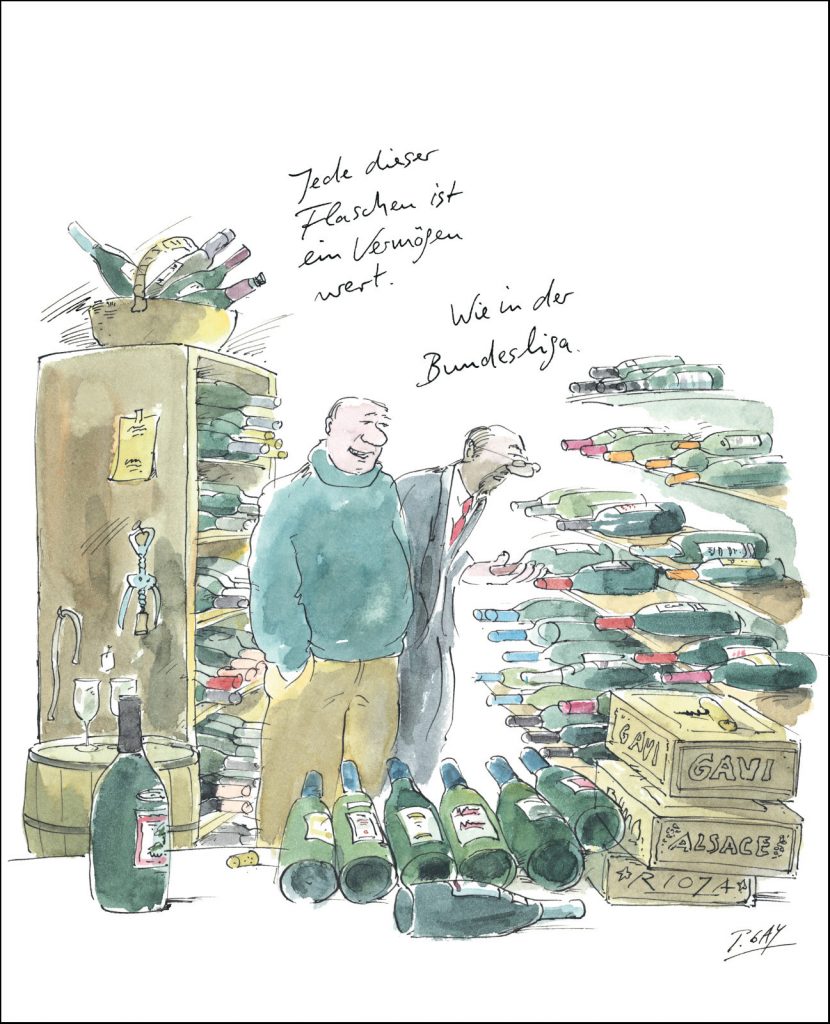 Jede dieser
Flaschen ist
ein Vermögen
wert.
Wie in der
Bundesliga.
GAVI
GAVI
ALSACE
RIOJA
P. GAY